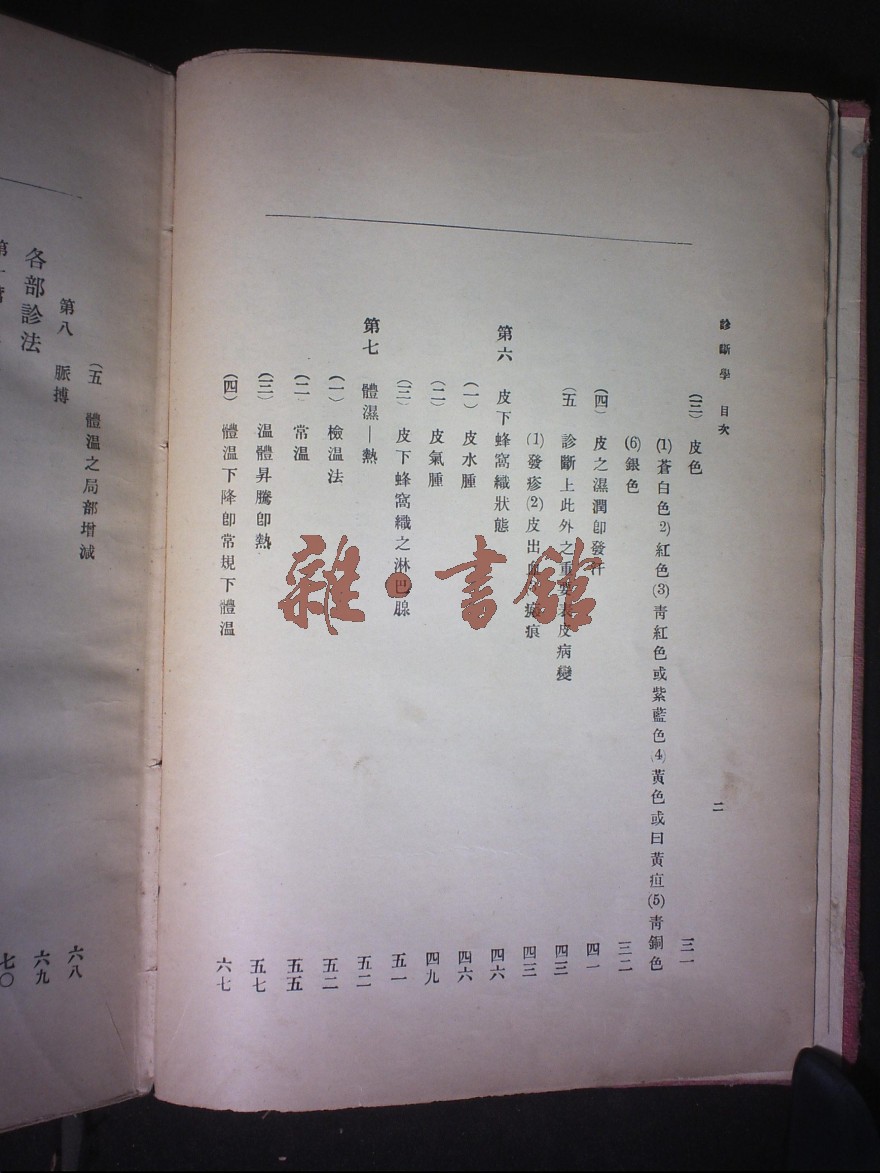 診斷學 目次 二
(三) 皮色 三一
(1)蒼白色2)紅色(3)靑紅色或紫藍色(4)黃色或曰黃疸(5)靑銅色
(6)銀色 三二
(四) 皮之濕潤卽發汗 四一
(五 診斷上此外之重要表皮病變 四三
(1)發疹(2)皮出血 瘢痕 四三
第六 皮下蜂窩織狀態 四六
(一) 皮水腫 四六
(二) 皮氣腫 四九
(三) 皮下蜂窩織之淋巴腺 五一
第七 體濕—熱 五二
(一) 檢溫法 五二
(二 常溫 五五
(三) 温體昇騰卽熱 五七
(四) 體温下降卽常規下體温 六七
(五 體温之局部增減 六八
第八 脈搏 六九
各部診法
第一 七〇
雜·書館